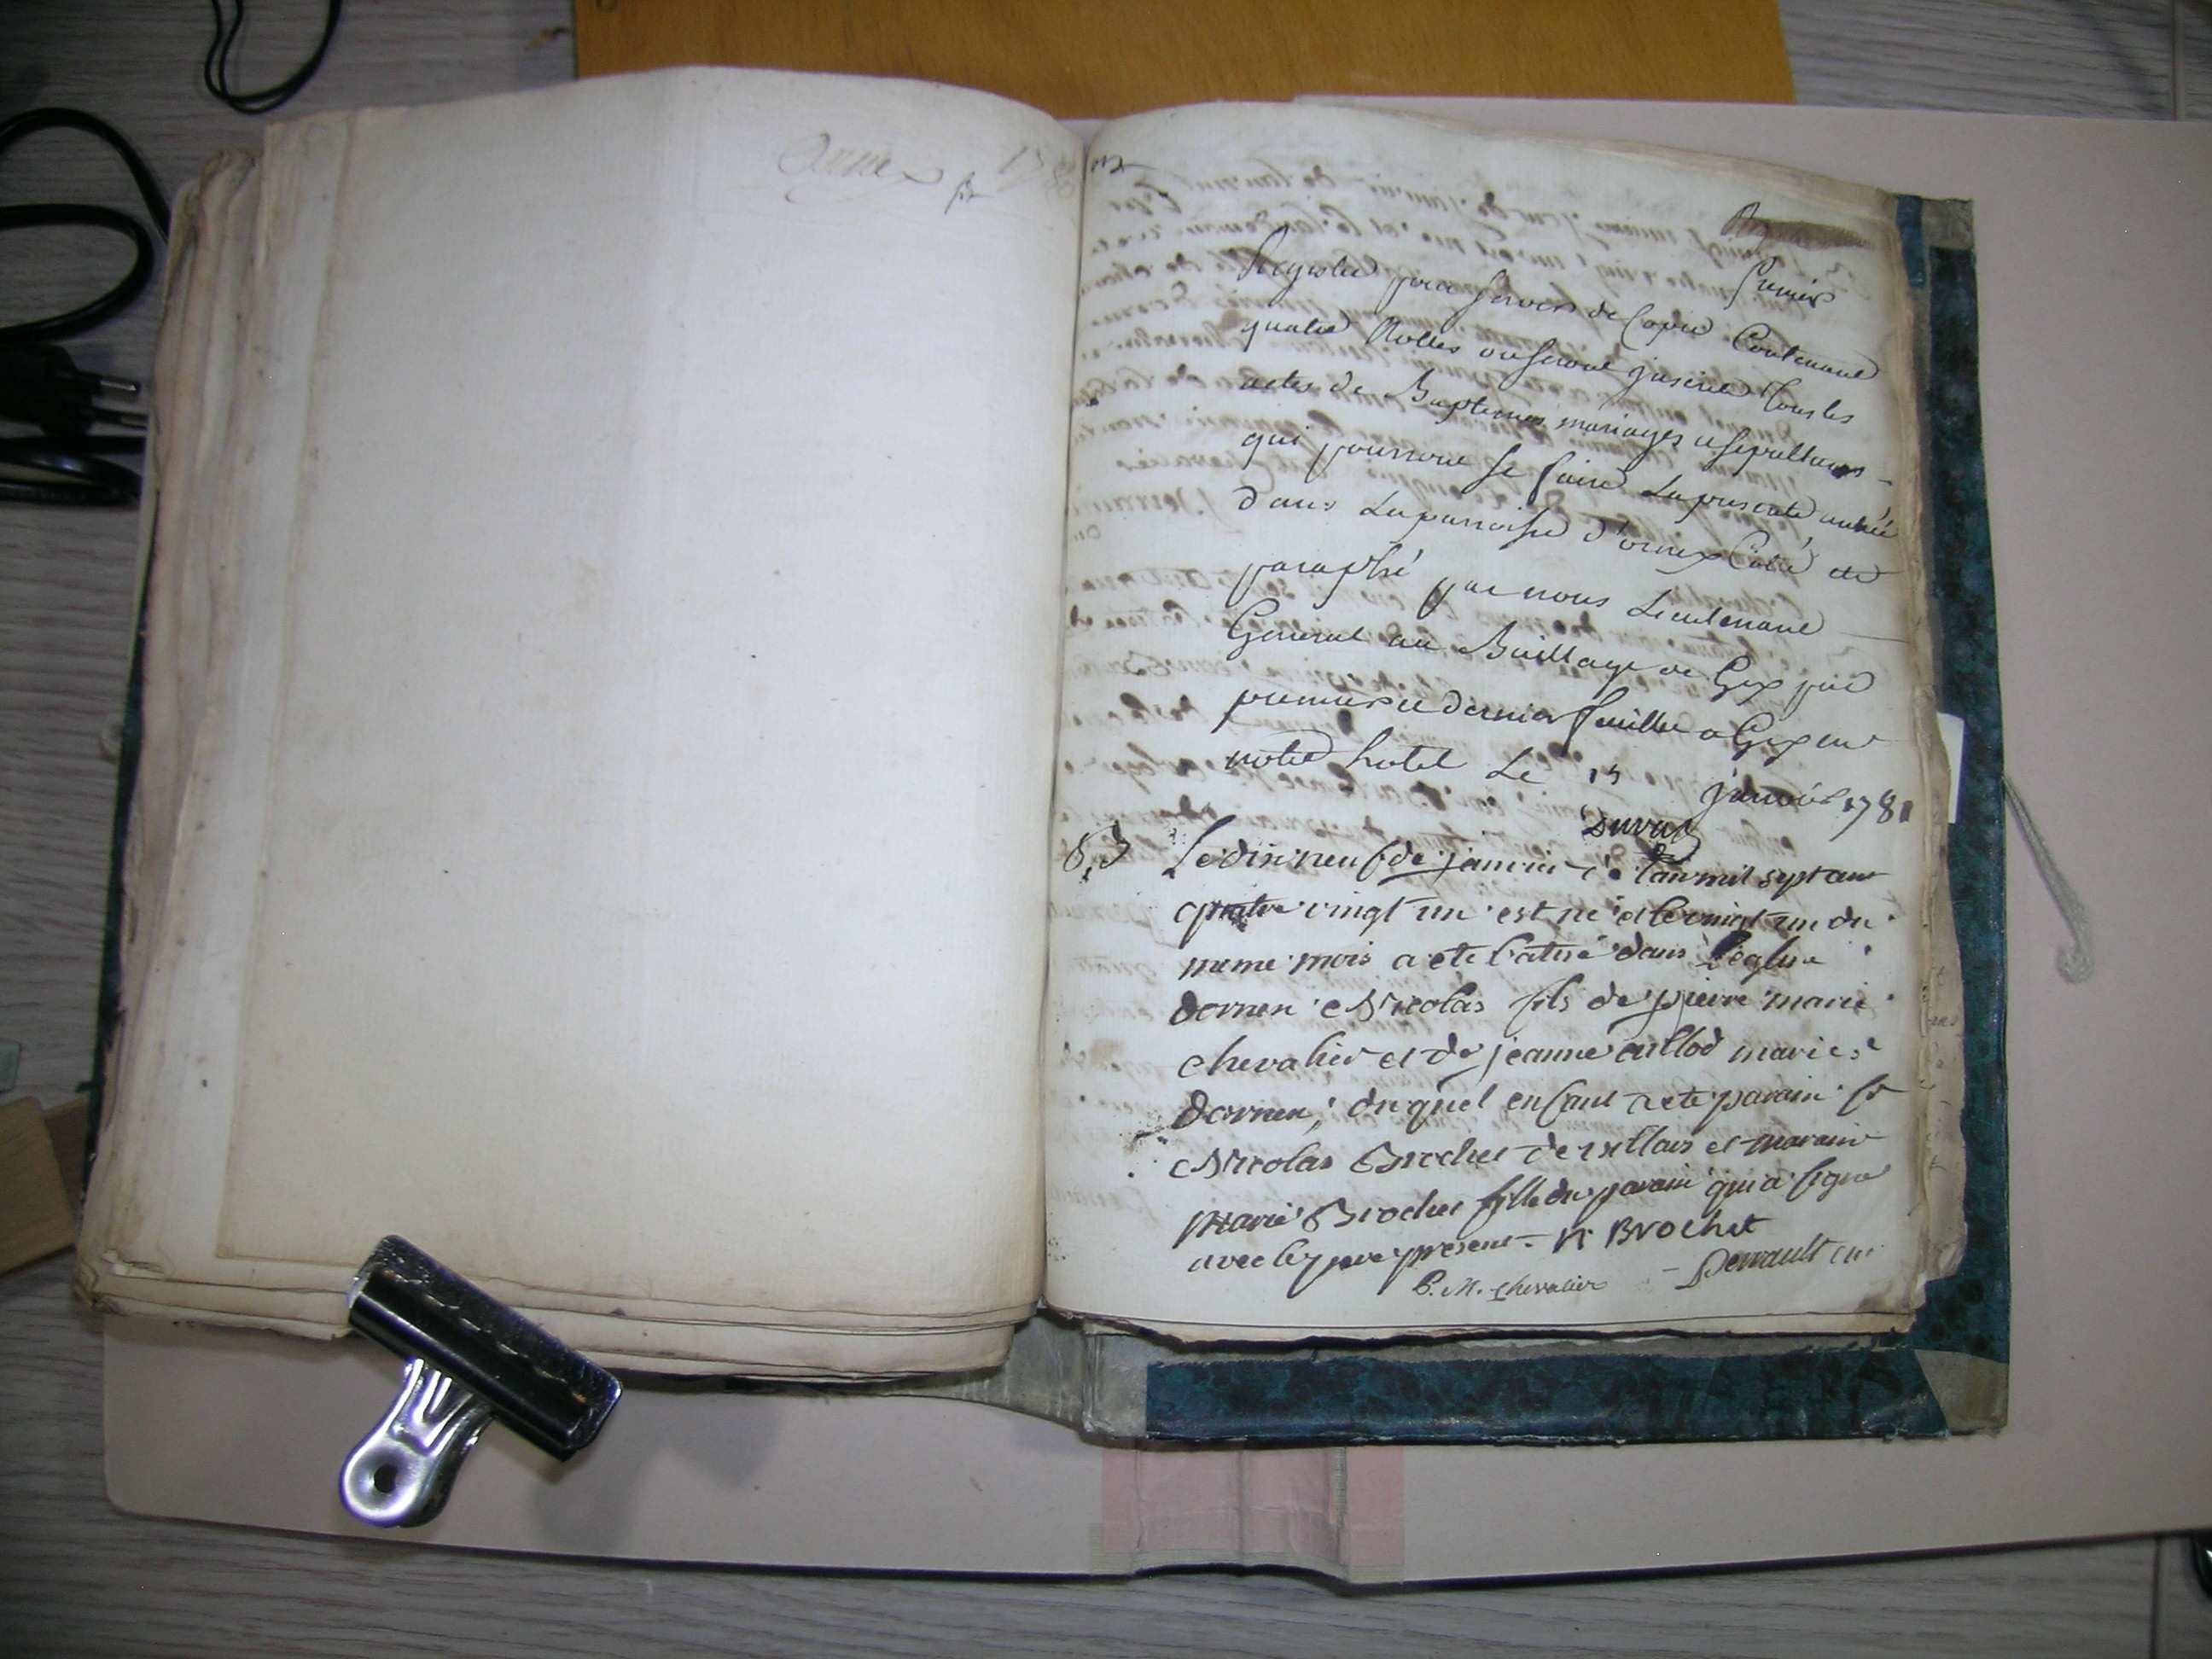 Ornex 178
Premier
Registre pour servir de Copie Contenant
quatre Rolles ou seront inscrit tous les
actes de Baptemes mariages et sepultures
qui pourront se faire La presente année
dans La parroisse d'ornex Cotté et
paraphé par nous Lieutenant
General au Bailliage de Gex par
premier et dernier feuillet a Gex en
notre hotel Le 15 janvier 1781
Duval
Le dix neuf de janvier de l'an mil sept cent
quatre vingt un est né et le vingt un du
meme mois a eté batisé dans l'eglise
dornex Nicolas fils de pierre marie
chevalier et de jeanne caillod mariés
dornex, duquel enfant a eté parain sr
Nicolas Brochet de villars et maraine
Marie Brochet fille du parain qui a signé
avec le pere present - N Brochet
P. M. Chevalier - Perrault cu